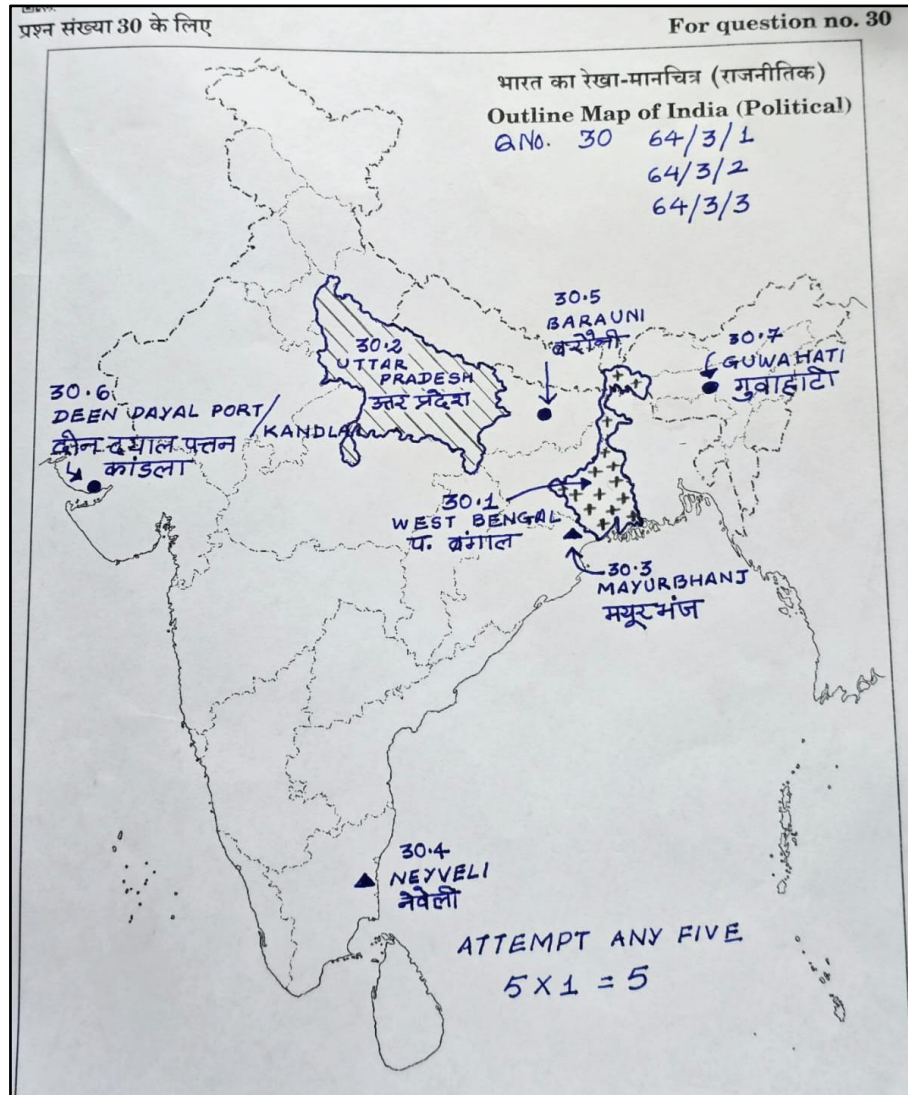 प्रश्न संख्या 30 के लिए
For question no. 30
भारत का रेखा-मानचित्र (राजनीतिक)
Outline Map of India (Political)
QNo. 30 64/3/1
64/3/2
64/3/3
30.5
BARAUNI
बरौनी
30.7
GUWAHATI
गुवाहाटी
30.2
UTTAR
PRADESH
उत्तर प्रदेश
30.6
DEEN DAYAL PORT/
KANDLA
दीन दयाल पत्तन
कांडला
30.1
WEST BENGAL
प. बंगाल
30.3
MAYURBHANJ
मयूरभंज
30.4
NEYVELI
नेवेली
ATTEMPT ANY FIVE
5 X 1 = 5